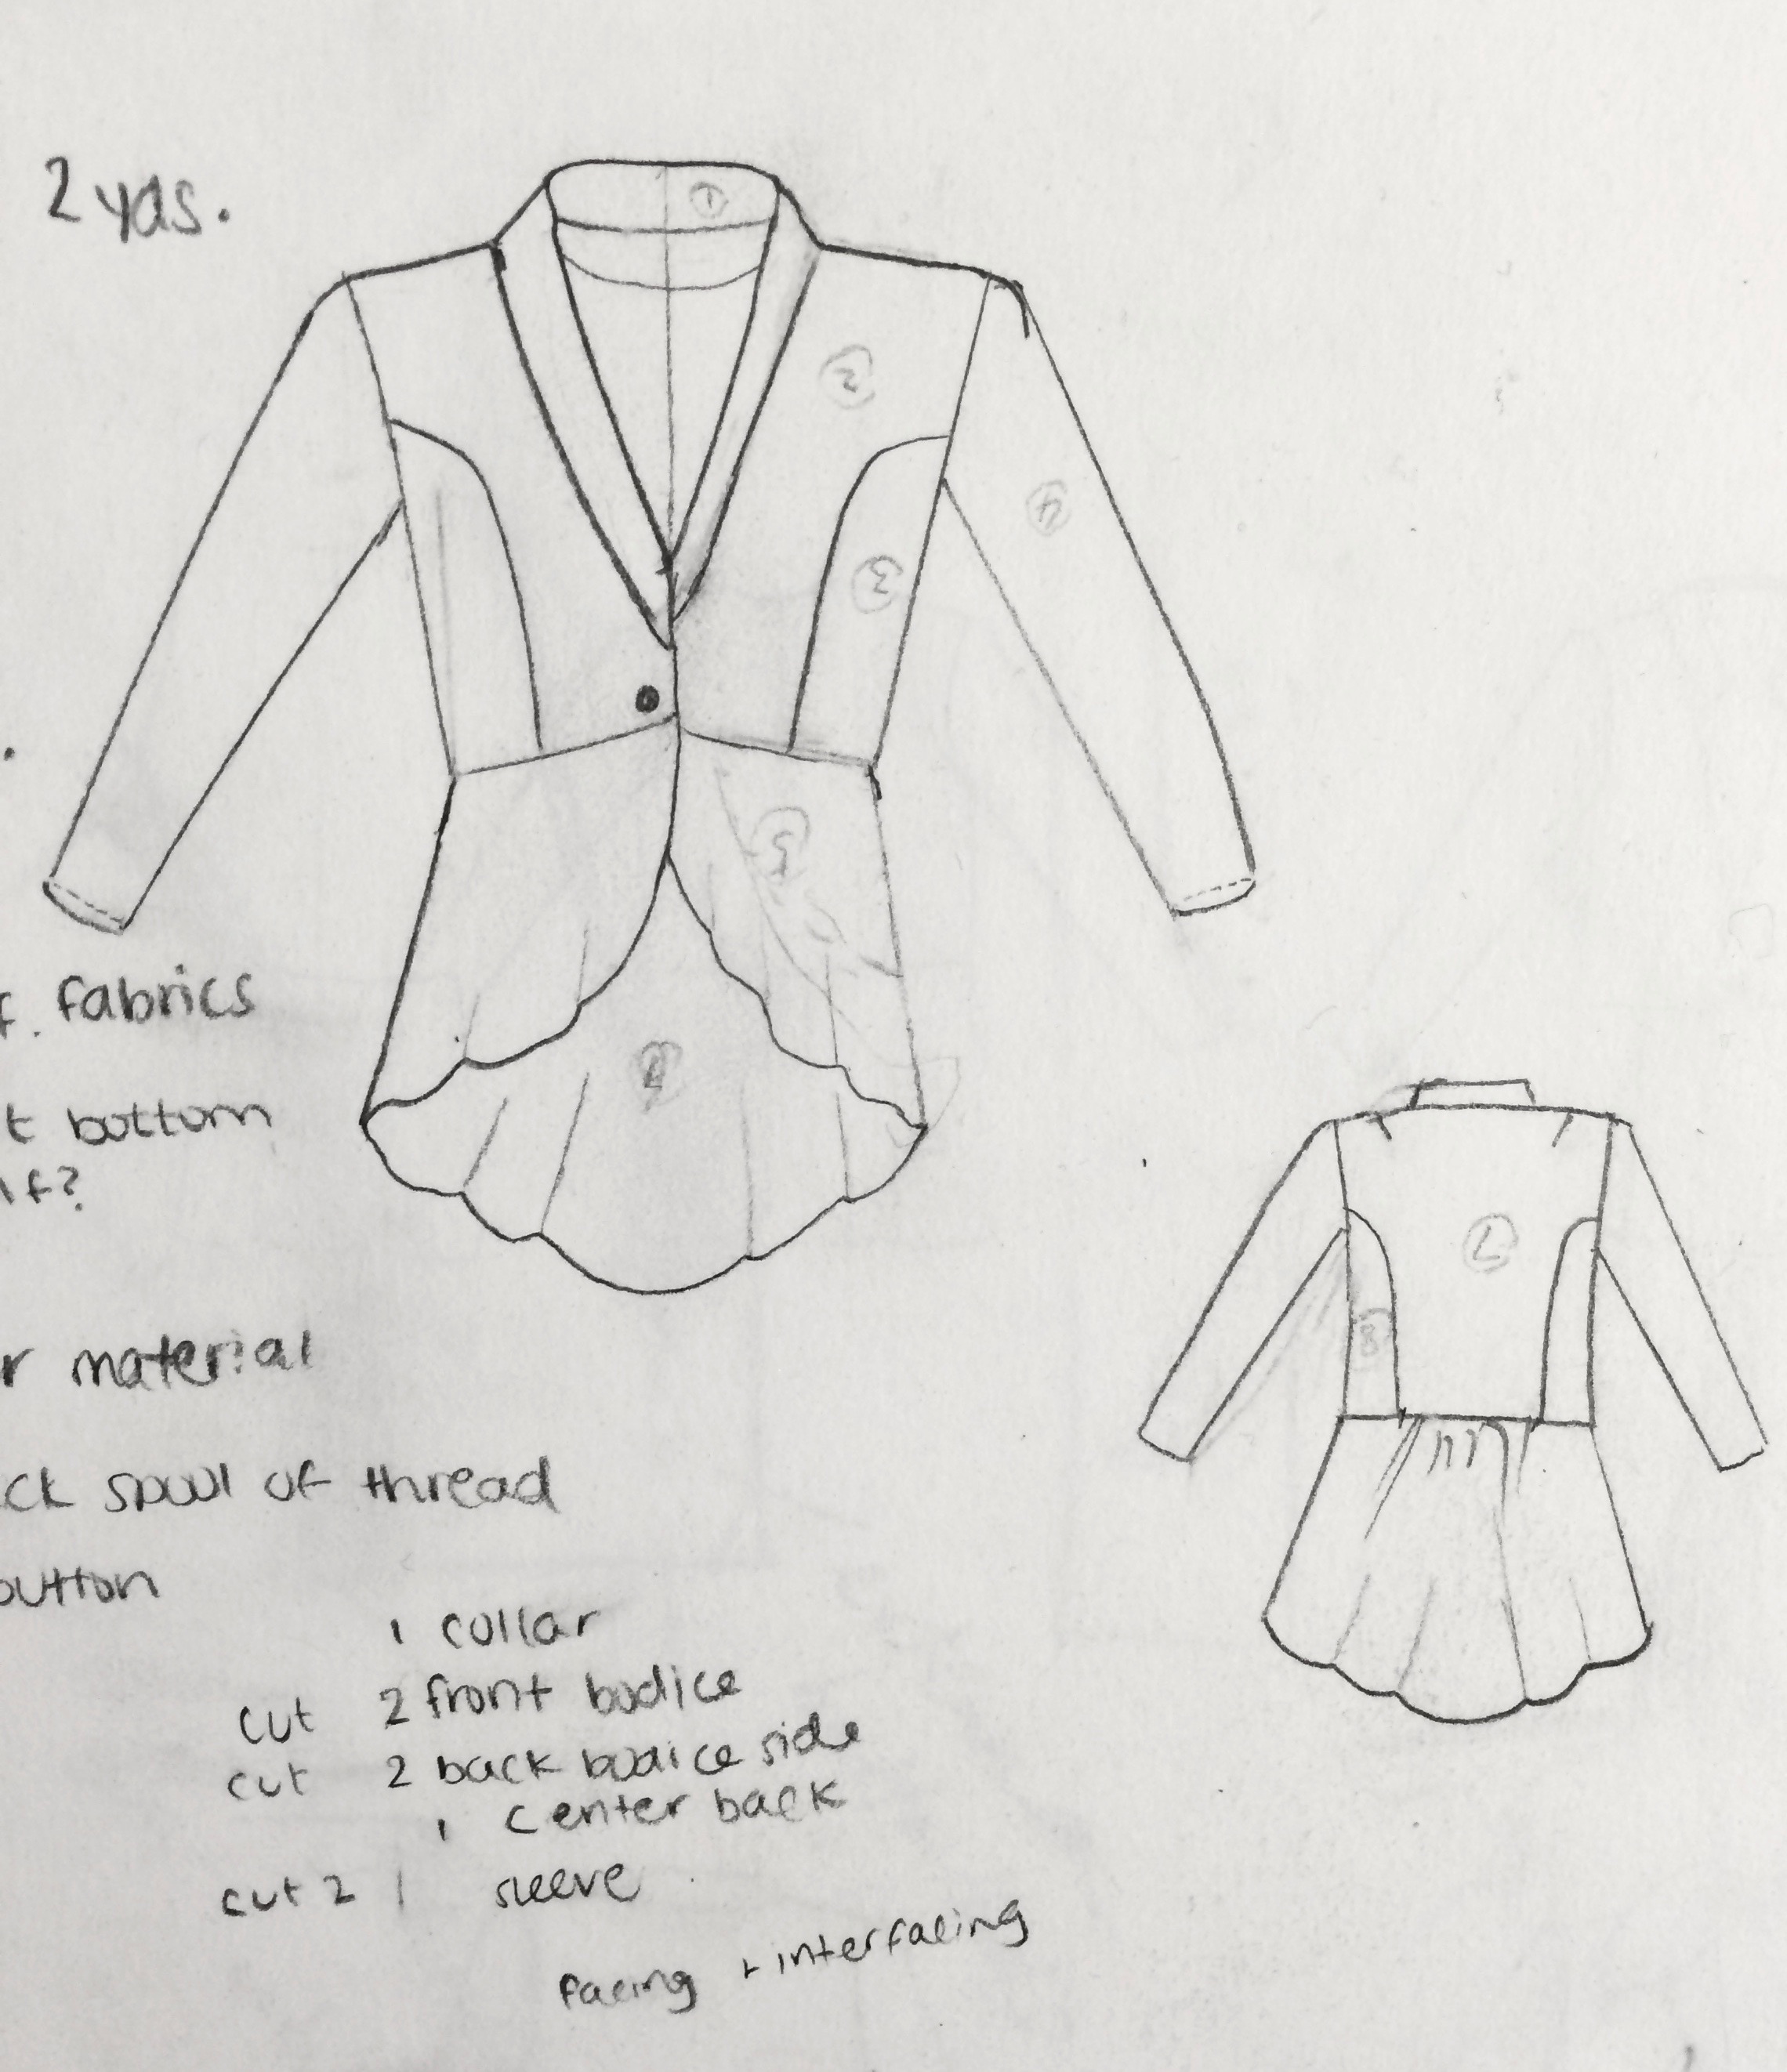 2 yds.
1
2
3
4
5
f. fabrics
t bottom
lf?
7
8
r material
ck spool of thread
button
1 collar
cut 2 front bodice
cut 2 back bodice side
1 center back
cut 2 1 sleeve
facing + interfacing